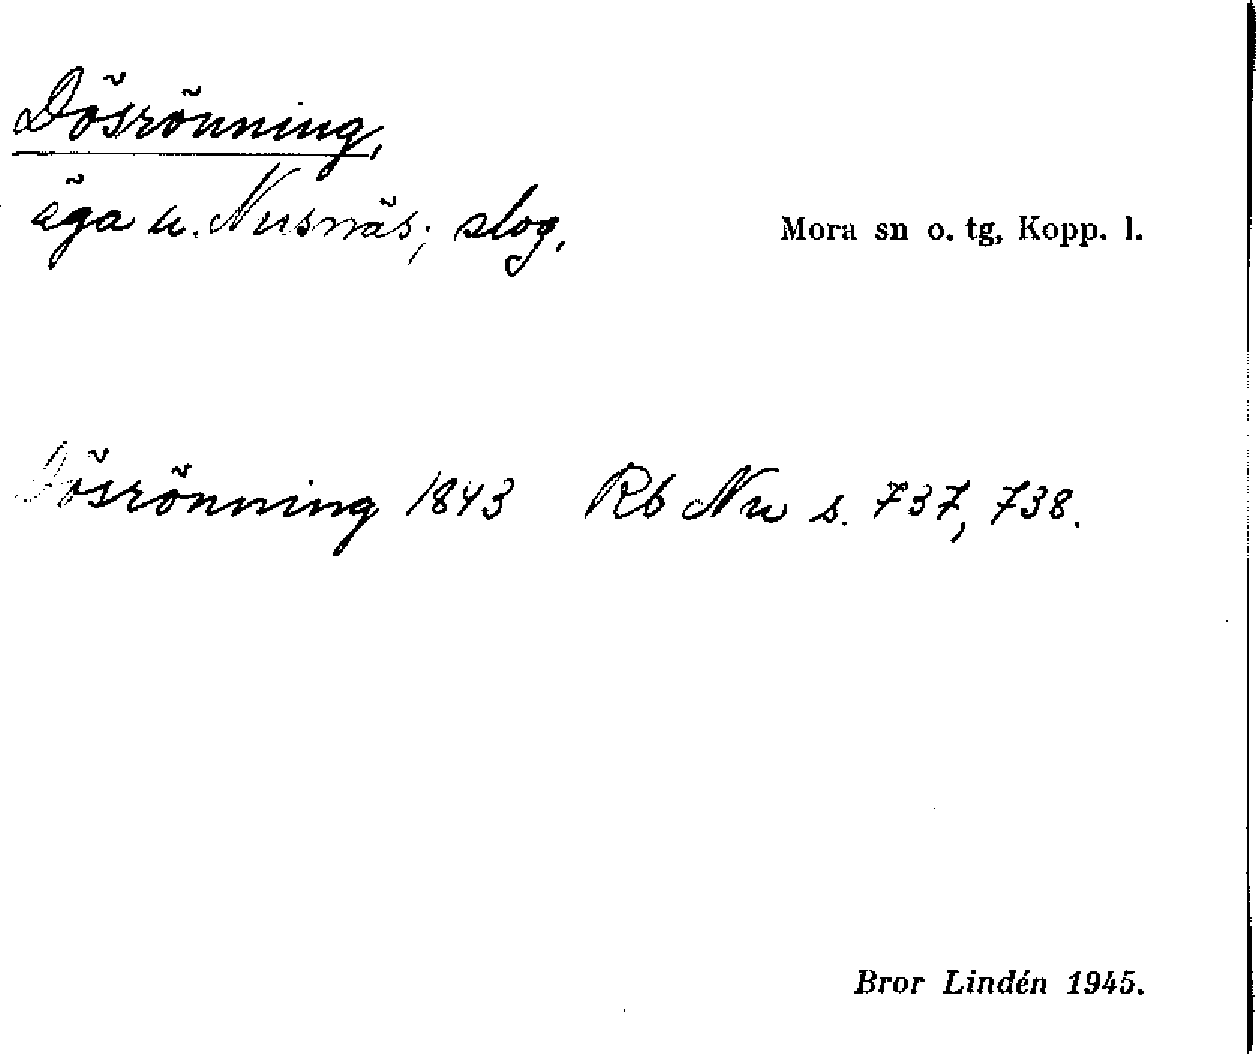 Dösrönning,
äga u. Nusnäs; slog.
Mora sn o. tg, Kopp. l.
Dösrönning 1843 Rb Nu s. 737, 738.
Bror Lindén 1945.